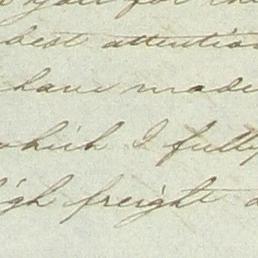 you for the
best attention
have made
which I fully
high freight